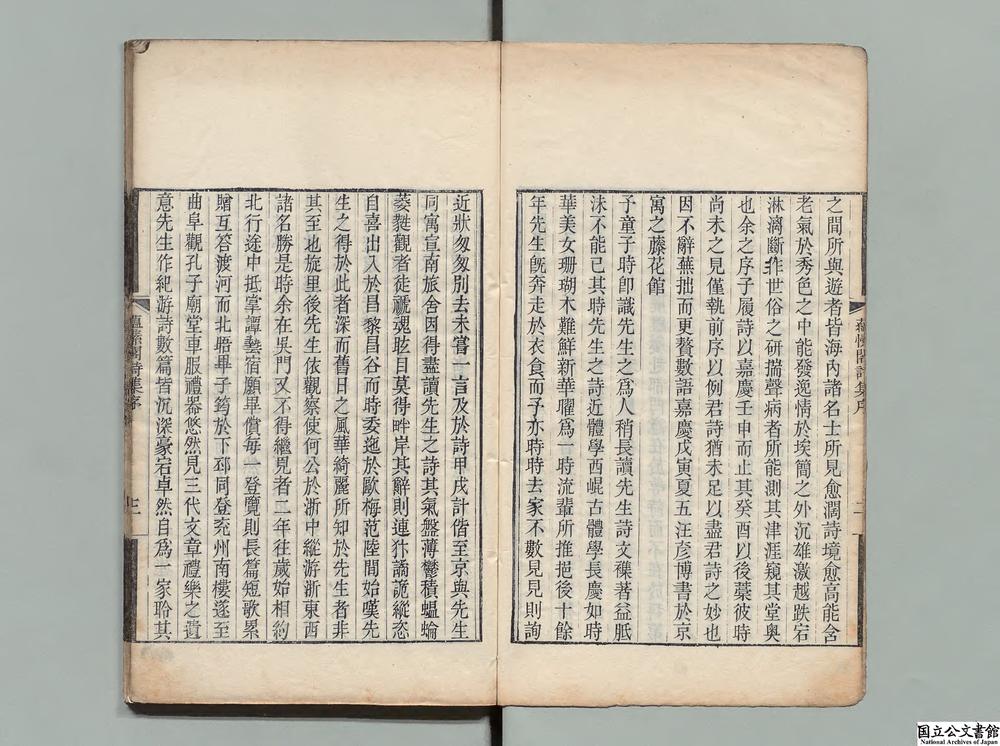 之間所與遊者皆海內諸名士所見愈濶詩境愈高能含
老氣於秀色之中能發逸情於埃簡之外沉雄激越跌宕
淋漓斷非世俗之研揣聲病者所能測其津涯窺其堂奧
也余之序子履詩以嘉慶壬申而止其癸酉以後藁彼時
尚未之見僅執前序以例君詩猶未足以盡君詩之妙也
因不辭蕪拙而更贅數語嘉慶戊寅夏五汪彥博書於京
寓之藤花館
子童子時卽識先生之爲人稍長讀先生詩文襍著益胝
沫不能已其時先生之詩近體學西崐古體學長慶如時
華美女珊瑚木難鮮新華曜爲一時流輩所推挹後十餘
年先生旣奔走於衣食而予亦時時去家不數見見則詢
近狀匆匆別去未嘗一言及於詩甲戌計偕至京與先生
同寓宣南旅舍因得盡讀先生之詩其氣盤薄鬱積蝹蜦
蔆㲚觀者徒褫魂眩目莫得畔岸其辭則連犿譎詭縱恣
自喜出入於昌黎昌谷而時委迤於歐梅范陸間始嘆先
生之得於此者深而舊日之風華綺麗所知於先生者非
其至也旋里後先生依觀察使何公於浙中縱游浙東西
諸名勝是時余在吳門又不得繼見者二年往歲始相約
北行途中抵掌譚藝宿願畢償每一登覽則長篇短歌累
贈互答渡河而北晤畢子筠於下邳同登兖州南樓遂至
曲阜觀孔子廟堂車服禮器悠然見三代文章禮樂之遺
意先生作紀游詩數篇皆沉深豪宕卓然自爲一家聆其
蘊愫閣詩集序
二
蘊愫閣詩集序
国立公文書館
National Archives of Japan